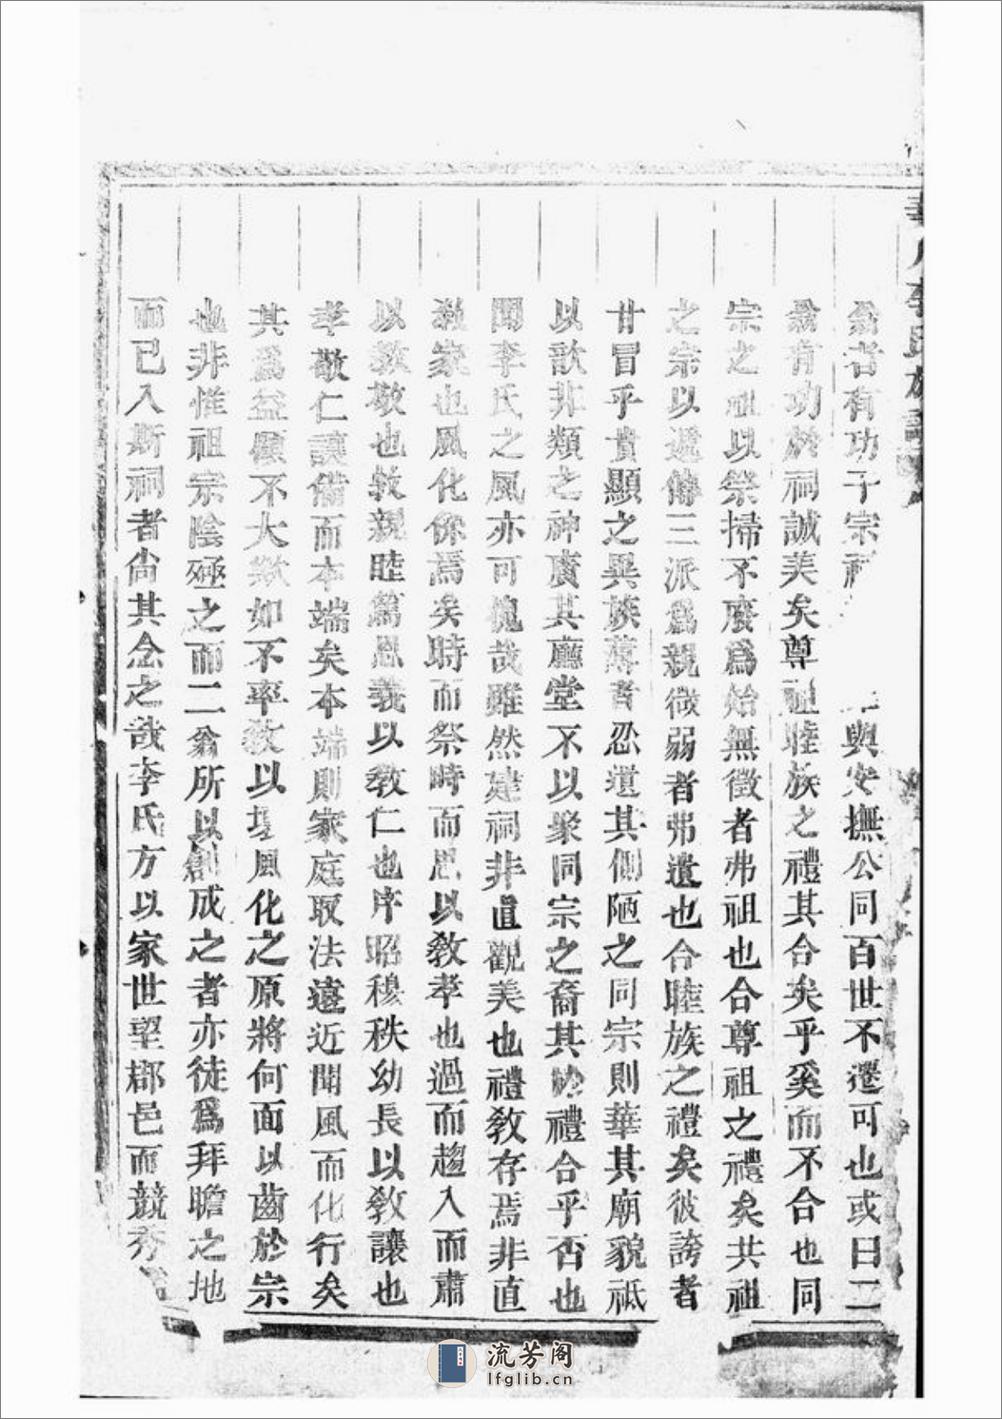 翁者有功于宗祠與安撫公同百世不遷可也或曰二
翁有功於祠誠美矣尊祖睦族之禮其合矣乎奚而不合也同
宗之祖以祭掃不廢爲始無徵者弗祖也合尊祖之禮矣共祖
之宗以遞傳三派爲親微弱者弗遺也合睦族之禮矣彼誇者
甘冒乎貴顯之異族薄者忍遺其側陋之同宗則華其廟貌祗
以歆非類之神廣其廳堂不以聚同宗之裔其於禮合乎否也
聞李氏之風亦可愧哉雖然建祠非直觀美也禮教存焉非直
教家也風化係焉矣時而祭時而思以教孝也過而趨入而肅
以教敬也敦親睦篤恩義以教仁也序昭穆秩幼長以教讓也
孝敬仁讓備而本端矣本端則家庭取法遠近聞風而化行矣
其爲益顧不大歟如不率教以壞風化之原將何面以齒於宗
也非惟祖宗陰殛之而二翁所以創成之者亦徒爲拜瞻之地
而已入斯祠者尙其念之哉李氏方以家世望郡邑而競秀
李氏族譜
流芳阁
lfglib.cn